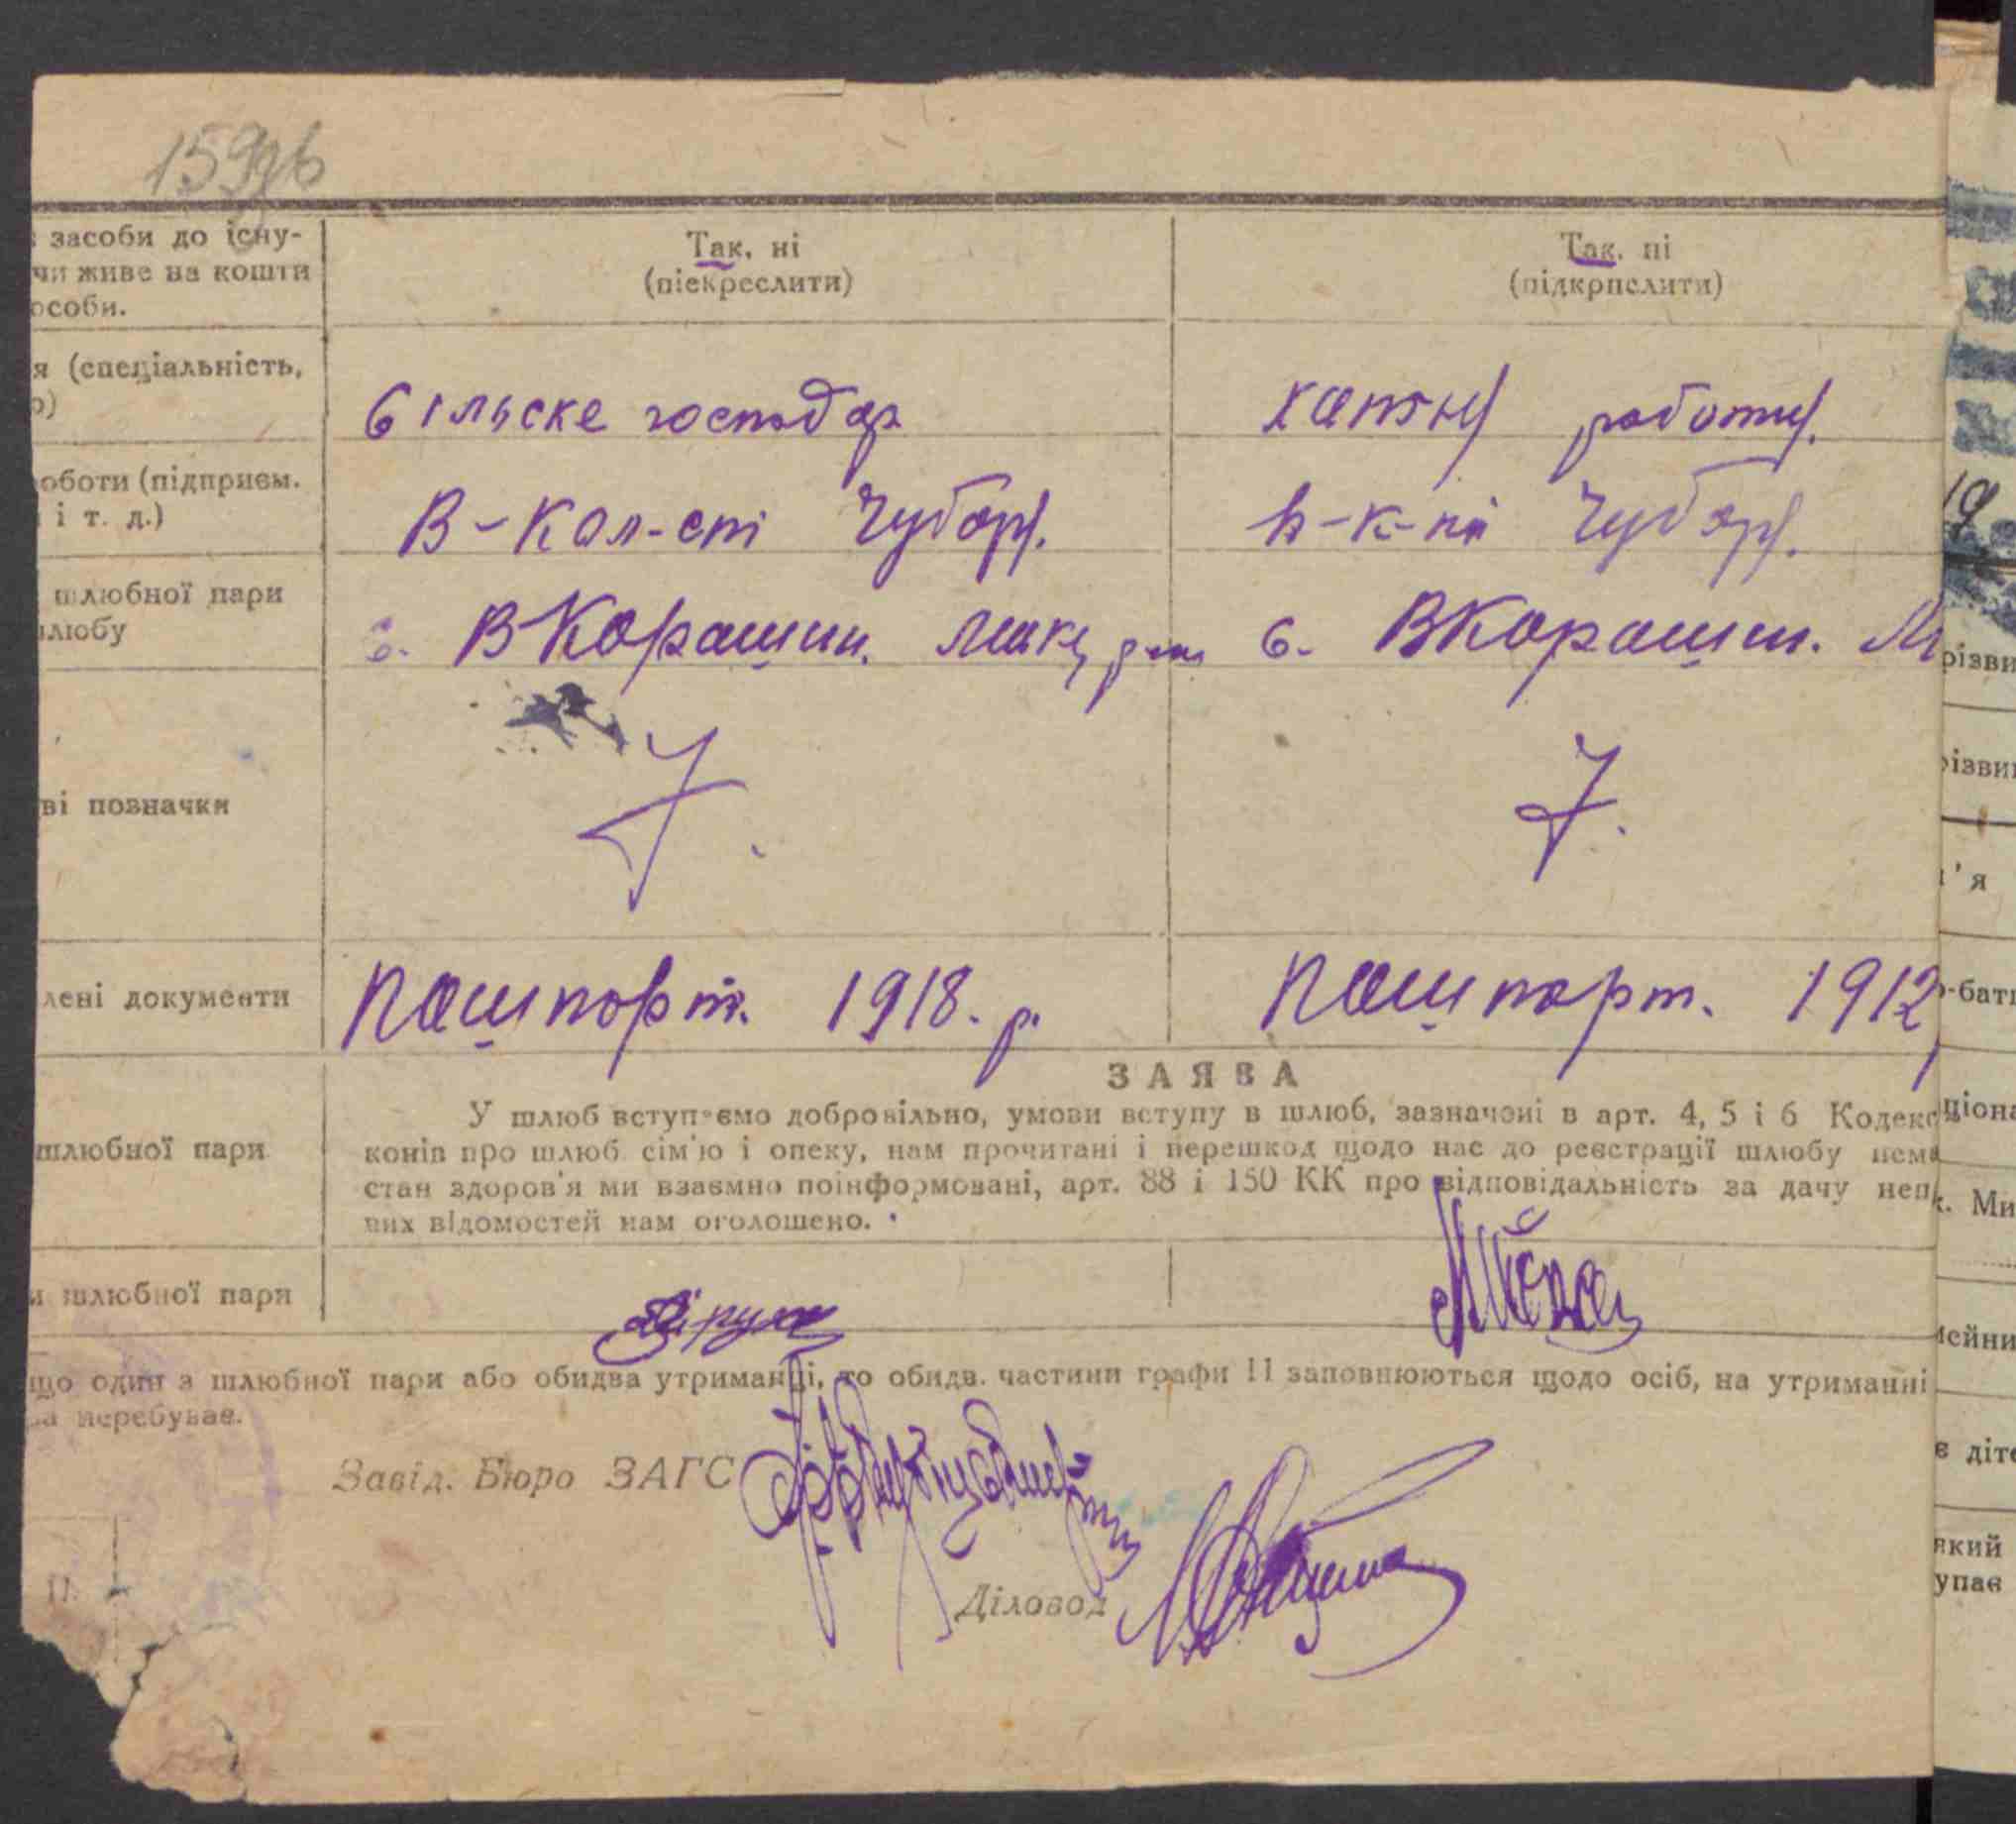 засоби до існу-
чи живе на кошти
особи.
Так, ні
(піекреслити)
Так, ні
(підкрпслити)
я (спеціальність,
Сільске господар
хатню роботу.
оботи (підприєм.
і т. д.)
В-Кол-спі Чубарь.
шлюбної пари
шлюбу
с. ВКорашин.
с. ВКорашин.
ві позначки
лені документи
Пашпорт. 1918. р.
Пашпорт. 1912
ЗАЯВА
У шлюб вступаємо добровільно, умови вступу в шлюб, зазначені в арт. 4, 5 і 6 Кодекс
конів про шлюб сім'ю і опеку, нам прочитані і перешкод щодо нас до реєстрації шлюбу нема
стан здоров'я ми взаємно поінформовані, арт. 88 і 150 КК про відповідальність за дачу неп
них відомостей нам оголошено.
шлюбної пари
и шлюбної пари
що один з шлюбної пари або обидва утриманці, то обидв. частини графи 11 заповнюються щодо осіб, на утриманні
перебуває.
Завід. Бюро ЗАГС
Діловод
19
різви
ізви
'я
-бат
ціона
. Ми
ейни
є діт
який
упає